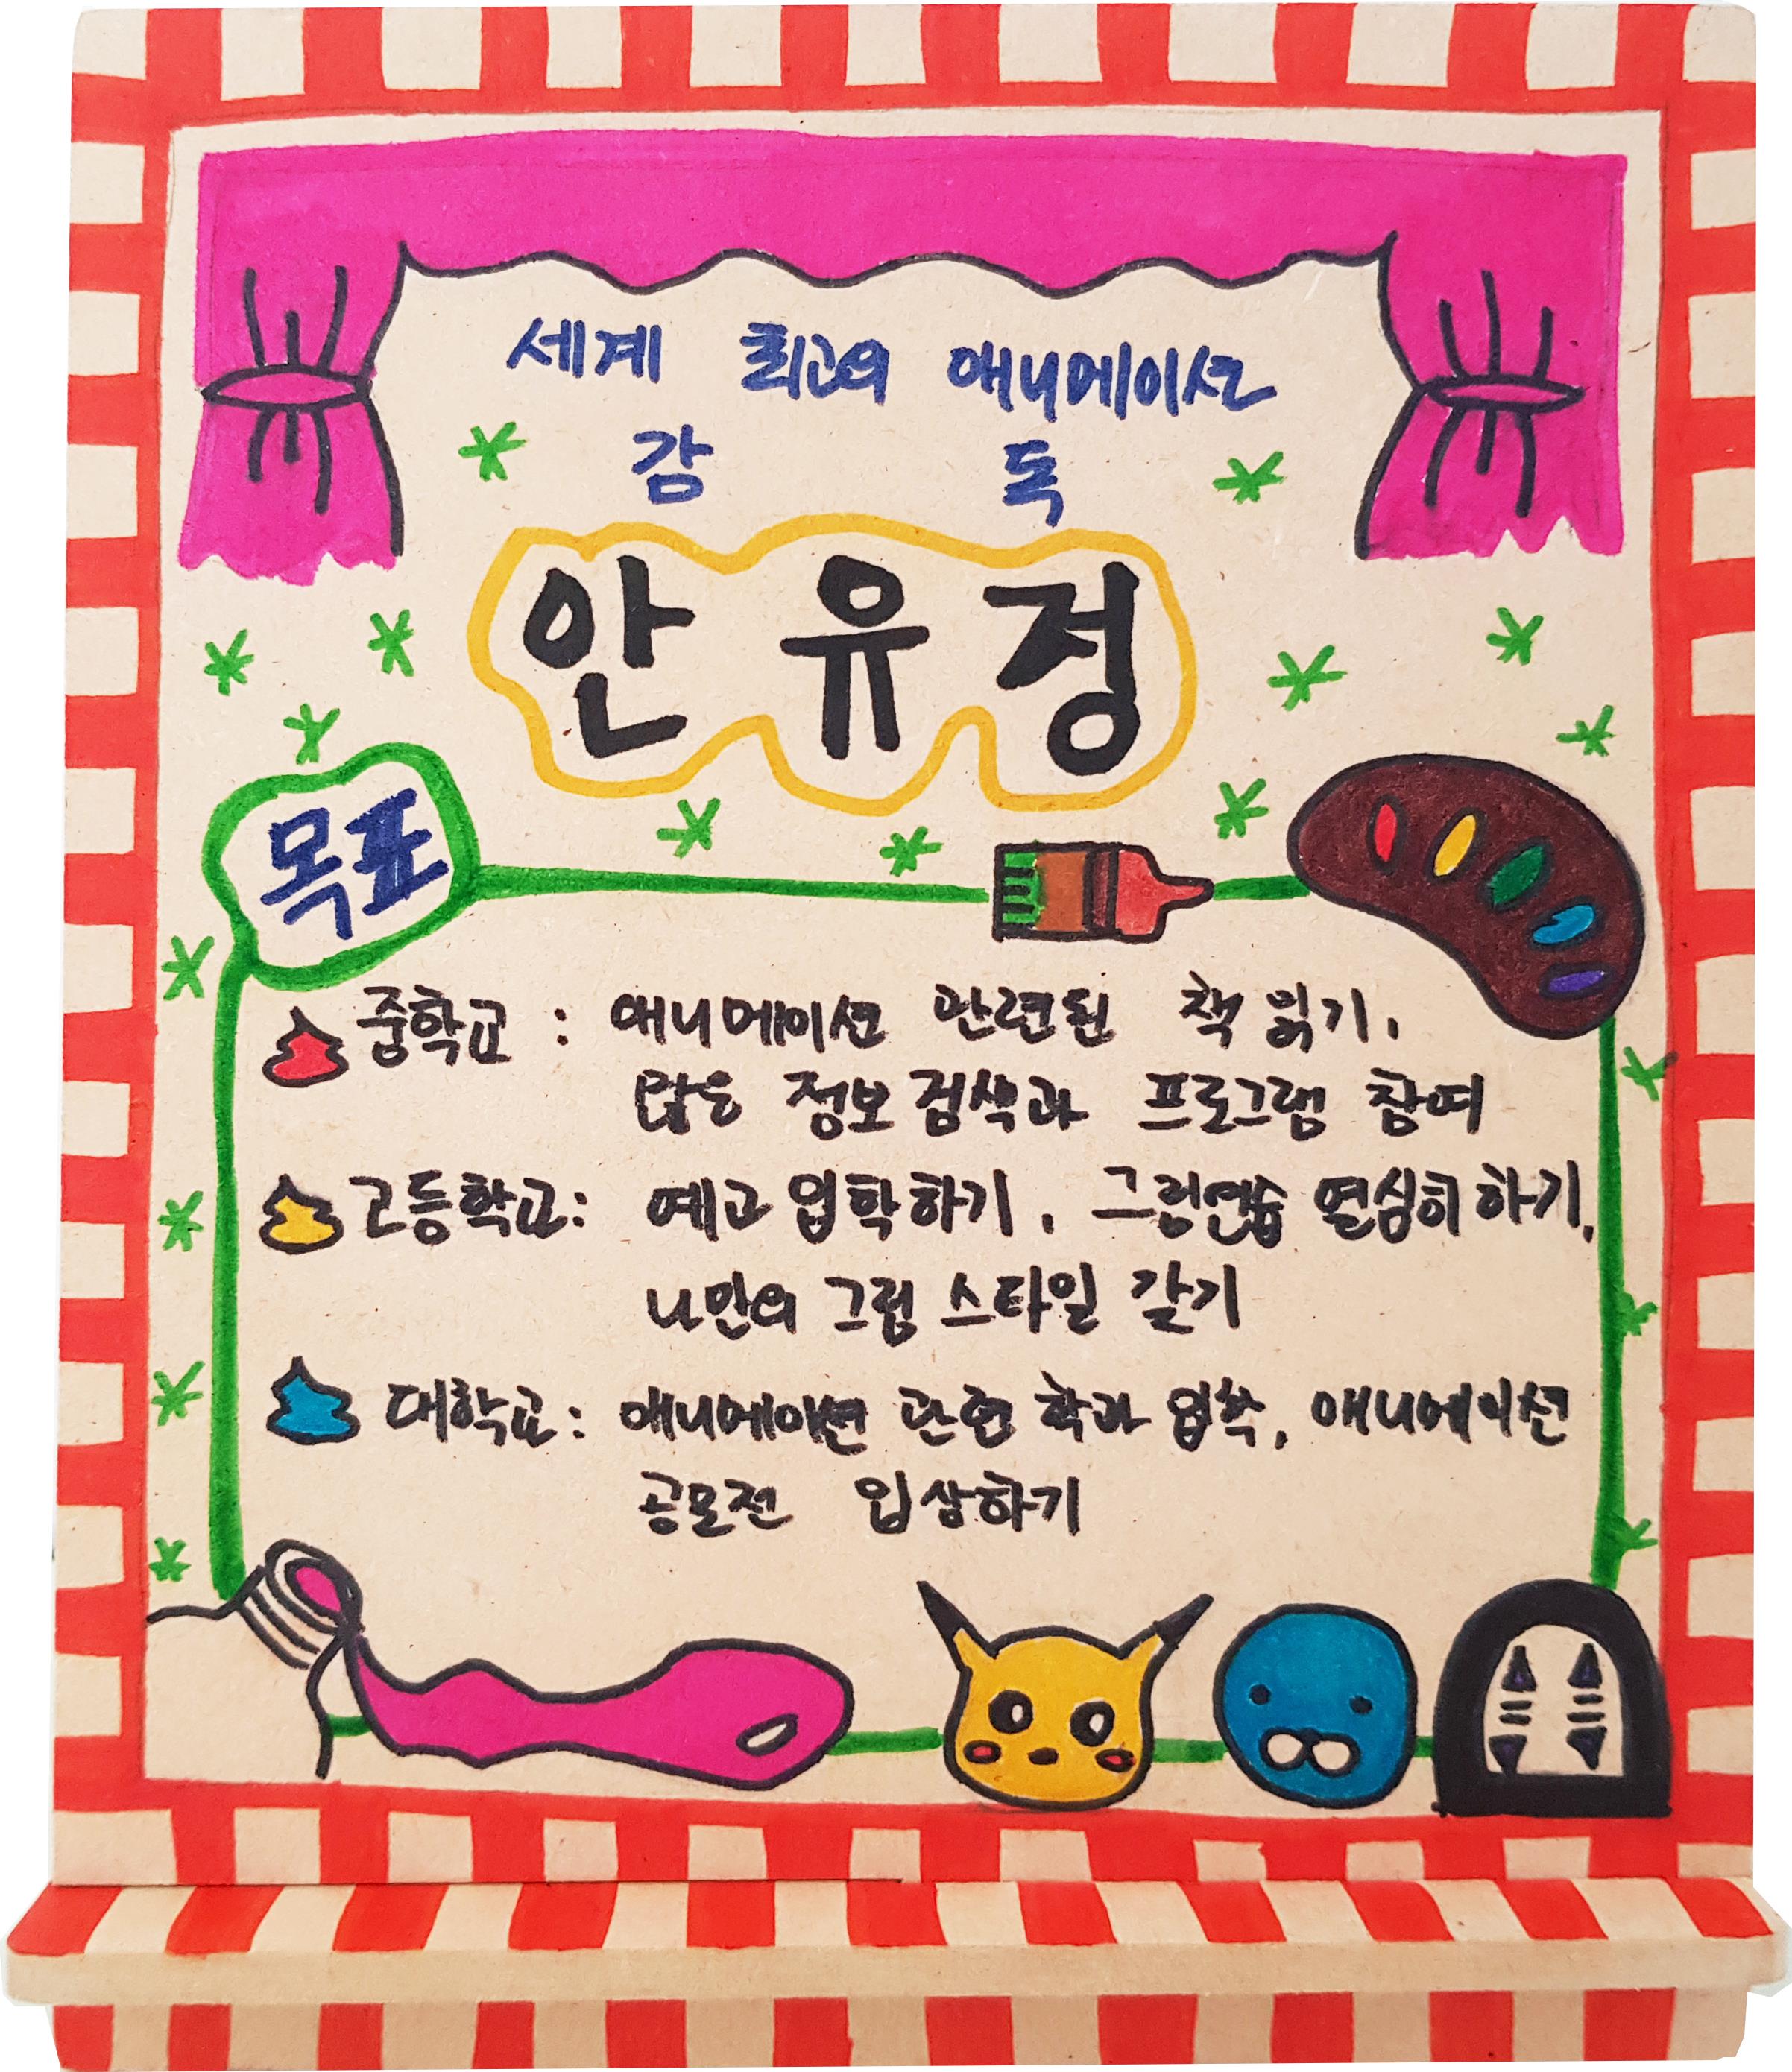 세계 최고의 애니메이션
감 독
안유정
목표
중학교 : 애니메이션 관련된 책 읽기.
많은 정보 검색과 프로그램 참여
고등학교 : 예고 입학하기. 그림연습 열심히 하기,
나만의 그림 스타일 갈기
대학교 : 애니메이션 관련 학과 입학, 애니메이션
공모전 입상하기